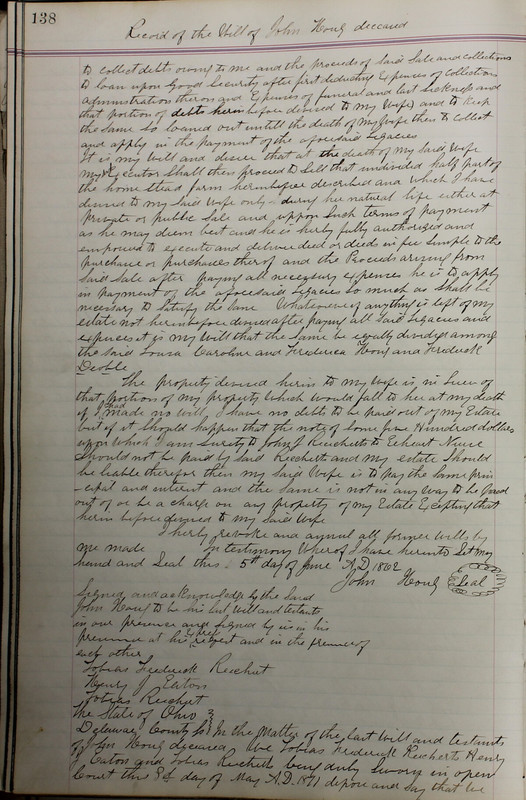 138
Record of the Will of John Houg deceased
to collect debts owing to me and the proceeds of said Sale and collections
to loan upon Good Security after first deducting Expenses of collection
administration theron and Expenses of funeral and last sickness and
that portion of debts herin before devised to my Wife and to Keep
the same so loaned out untill the death of my Wife then to collect
and apply in the payment of the aforesaid Legacies
It is my Will and desire that at the death of my said Wife
my Executor shall then proceed to Sell that undivided half part of
the home stead farm herinbefore described and which I have
devised to my said Wife only during her natural life either at
Private or public Sale and uppon Such terms of payment
as he may diem best and he is herby fully authorized and
empowred to execute and deliver deed or deeds in fee simple to the
purchaser or purchasers therof and the Proceeds arrising from
said Sale after paying all necessary expences he is to apply
in payment of the aforesaid Legacies so much as Shall be
necessary to Satisfy the same Whatsoever if anything is left of my
estate not herinbefore devised after paying all said Legacies and
expences it is my Will that the same be equally divided among
the said Louisa Caroline and Frederica Houg and Frederick
Deoble
The property devised herin to my Wife is in Lieu of
that portion of my property which would fall to her at my death
if I had made no Will I have no debts to be paid out of my Estate
but if it should happen that the note of some five Hundred dollars
upon which I am Surety to John J Reichert to Eckert
should not be paid by said Reichert and my estate should
be liable therefor then my said Wife is to pay the same prin
-cipal and interest and the same is not in any way to be paid
out of or be a charge on any property of my Estate Excepting that
herin before devised to my said Wife
I herby revoke and annul all former Wills by
me made In testimony Wherof I have herunto Set my
hand and Seal this 5th day of June A.D. 1862
John Houg Seal
Signed and acknowledged by the said
John Houg to be his last Will and testament
in our presence and signed by us in his
presence at his request and in the presence of
each other
Tobias Frederick Reichert
Henry J Eaton
Tobias Reichert
The State of Ohio
Delaware County Ss In the Matter of the last Will and testament
of John Houg deceased We Tobias Frederick Reichert Henry
J Eaton and Tobias Reichert being duly sworn in open
Court this 8th day of May A.D. 1871 depose and say that we